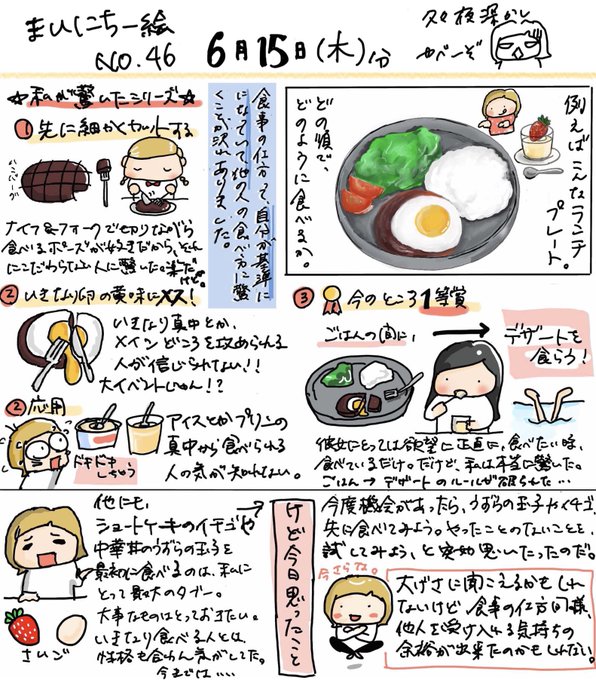 まいにち一絵
NO.46
6月15日(木)分
久々夜深かん
やべーぞ
☆私が驚いたシリーズ☆
①先に細かくカットする
ハンバーグ
ナイフ&フォークで切りながら
食べるポーズが好きだから、それ
にこだわらない人に驚いた。楽だ
けど。
食事の仕方って、自分が基準に
なっていて他の人の食べ方に驚
くことが沢山ありました。
例えばこんなランチ
プレート。
どの順で、
どのように食べるか。
②いきなり卵の黄味に××!
いきなり真中とか、
メインどころを攻められる
人が信じられない!!
大イベントじゃん!?
②応用
ドキドキ
しちゃう
アイスとかプリンの
真中から食べられる
人の気が知れない。
③今のところ1等賞
ごはんの間に、
デザートを
食らう!
彼女にとっては欲望に正直に、食べたい時、
食べているだけ。だけど、私は本当に驚いた。
ごはん→デザートのルールが破られた…
他にも、
ショートケーキのイチゴや
中華丼のうずらの玉子を
最初に食べるのは、私に
とって最大のタブー。
大事なものはとっておきたい。
いきなり食べる人とは、
性格も合わん気がしてた。
今までは‥‥
さいご
けど今日思ったこと
今度機会があったら、うずらの玉子やイチゴ、
先に食べてみよう。やったことのないことを、
試してみよう、と突如思いたったのだ。
今さらな。
大げさに聞こえるかもしれ
ないけど、食事の仕方同様、
他人を受け入れる気持ちの
余裕が出来たのかもしれない。